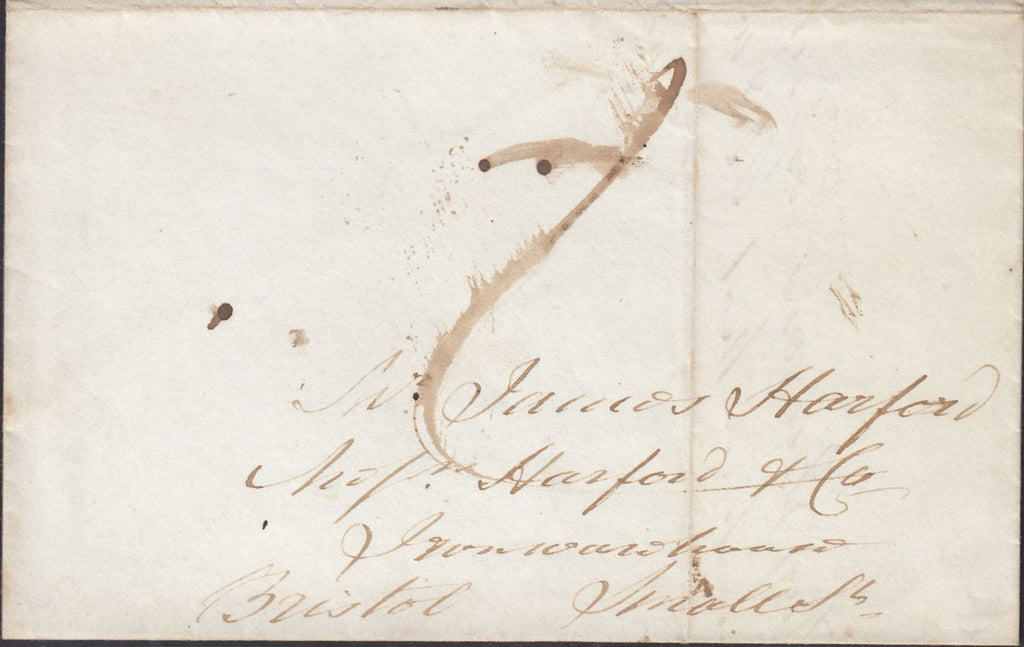 7
Mr. James Harford
Messrs. Harford & Co
Iron warehouse
Bristol Small St.